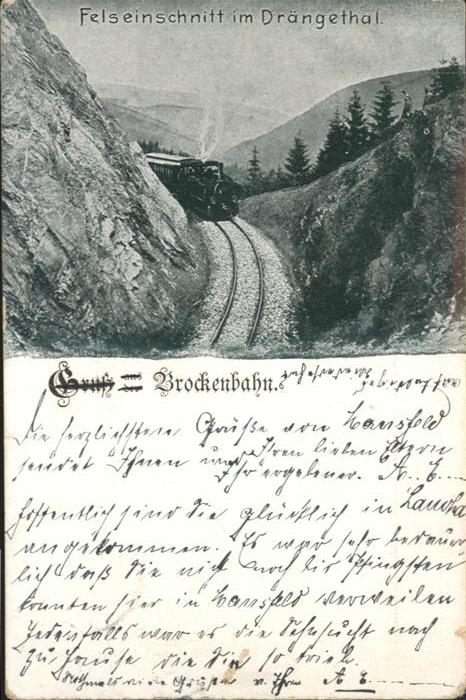 Felseinschnitt im Drängethal.
Gruß aus Brockenbahn.
Die herzlichsten Grüße von Mansfeld
sendet Ihnen und Ihren lieben Eltern
Ihr ergebener. A. E.
Hoffentlich sind Sie glücklich in Laucha
angekommen. Es war sehr bedauer
lich daß Sie nicht noch bis Pfingsten
konnten hier in Mansfeld verweilen
Jedenfalls war es die Sehnsucht nach
zu Hause die Sie so trieb.
Nochmals viele Grüße v. Ihrem A. E.